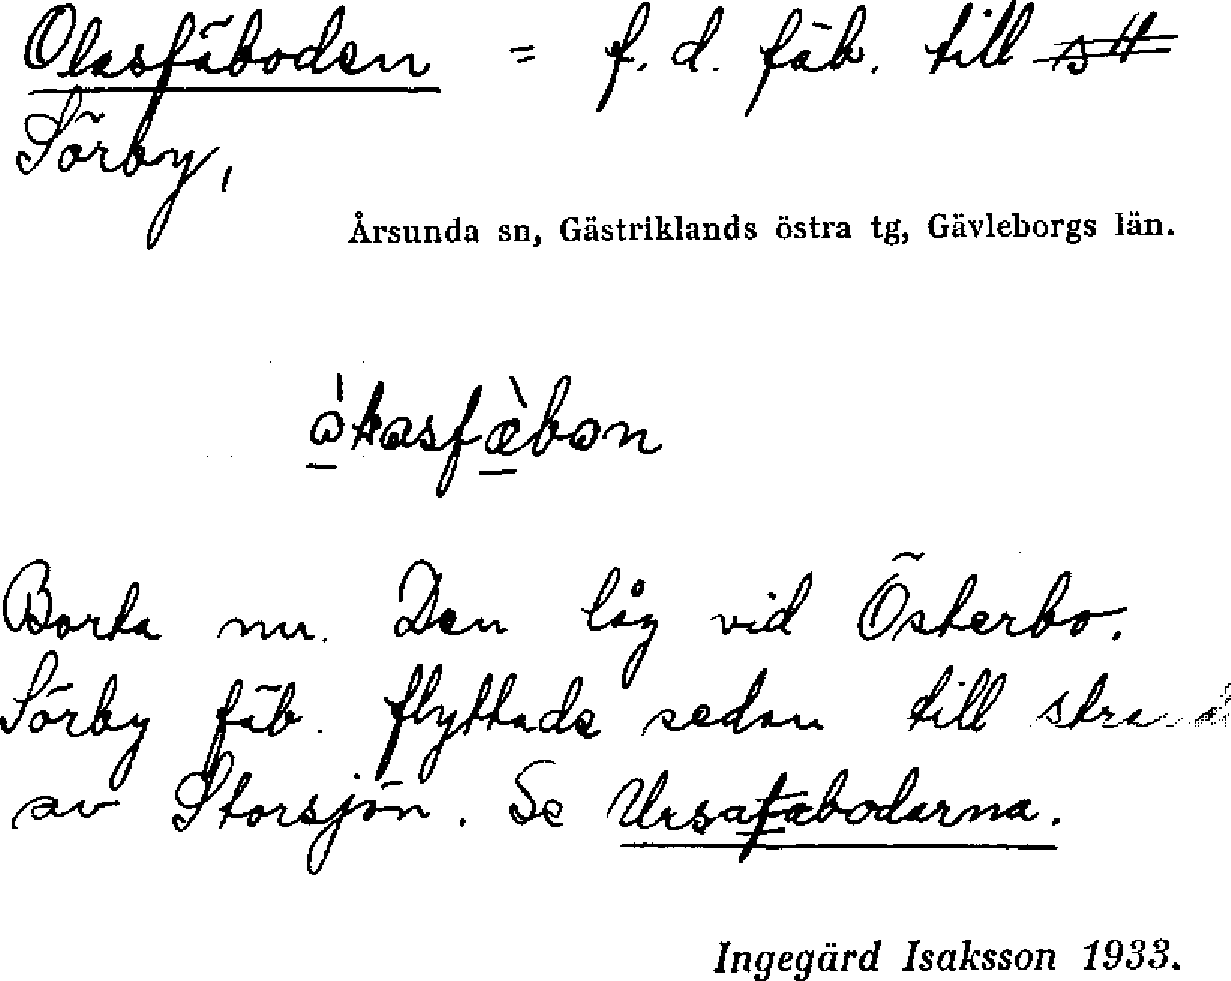 Olasfäboden = f. d. fäb. till
Sörby,
Årsunda sn, Gästriklands östra tg, Gävleborgs län.
Borta nu. Den låg vid Österbo.
Sörby fäb. flyttade sedan till
av Storsjön. Se Ursafäbodarna.
Ingegärd Isaksson 1933.